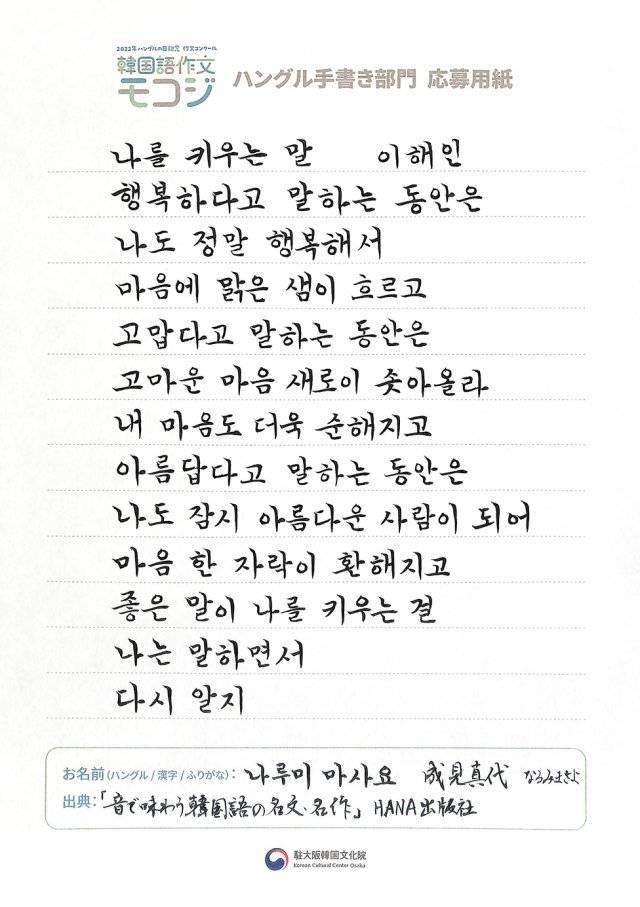 2022年ハングルの日記念 作文コンクール
韓国語作文
モコジ
ハングル手書き部門 応募用紙
나를 키우는 말 이해인
행복하다고 말하는 동안은
나도 정말 행복해서
마음에 맑은 샘이 흐르고
고맙다고 말하는 동안은
고마운 마음 새로이 솟아올라
내 마음도 더욱 순해지고
아름답다고 말하는 동안은
나도 잠시 아름다운 사람이 되어
마음 한 자락이 환해지고
좋은 말이 나를 키우는 걸
나는 말하면서
다시 알지
お名前(ハングル / 漢字 / ふりがな): 나루미 마사요 成見真代 なるみまさよ
出典:「音で味わう韓国語の名文・名作」 HANA出版社
駐大阪韓国文化院
Korean Cultural Center Osaka